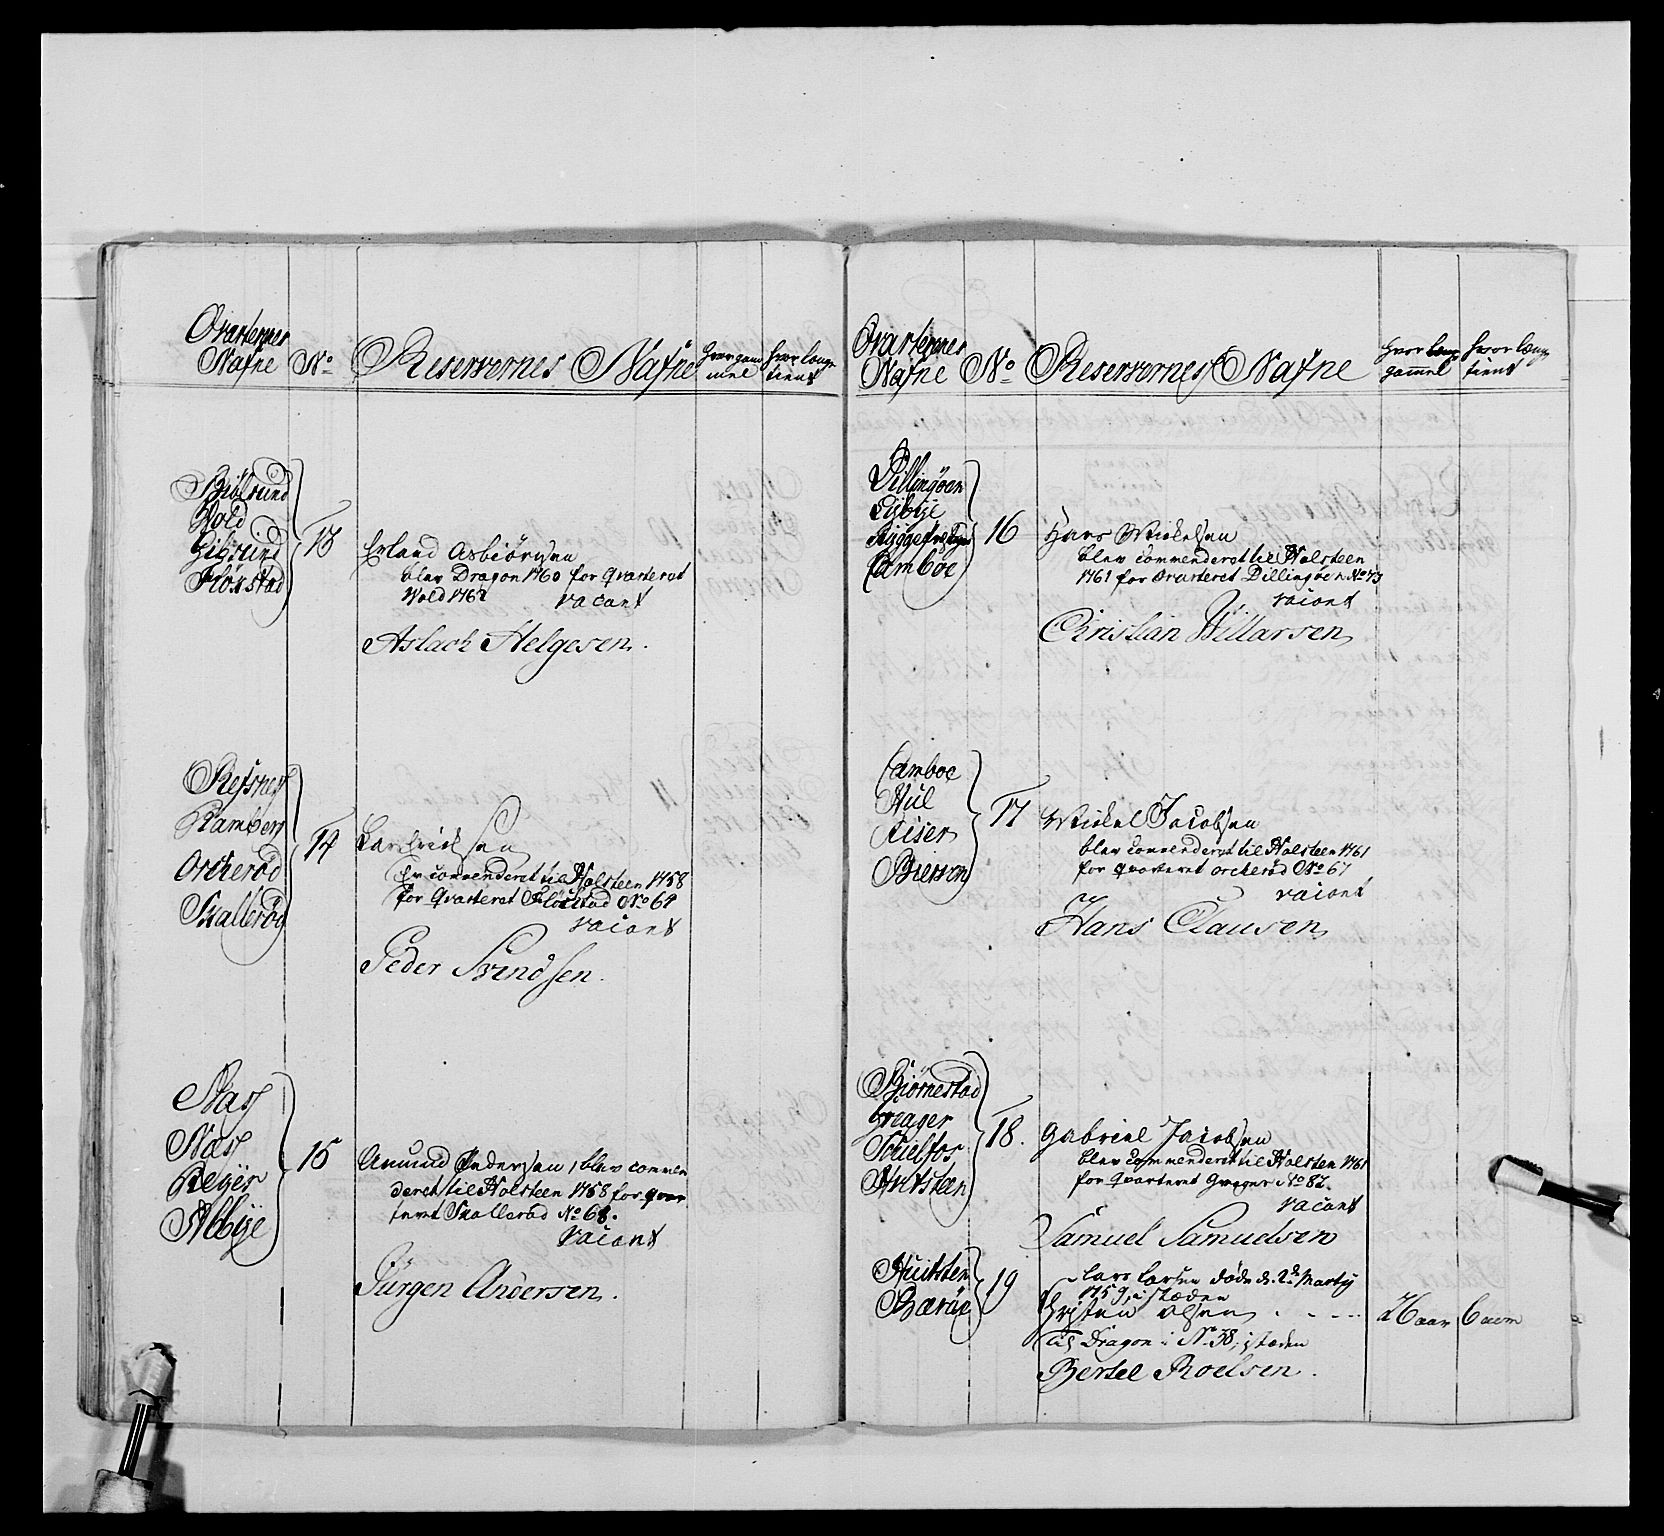 Qvarterernes
Nafne
No
Reservernes Nafne
hvor gam
mel
hvor lenge
tient
Wold
Gibsund
Floxstad
13
Erland Asbiörnsen
blev Dragon 1760 for Qvarteret
Wold 1762
vacant
Aslach Helgesen.
Refsnes
Ramberg
Orcherød
Skallerød
14
Lars Erichsen
er commenderet til Holsteen 1758
for Qvarteret Flöxstad No 64
vacant
Peder Svendsen.
Nas
Nas
Reyer
Abbye
15
Amund Pedersen, blev commen
deret til Holsteen 1758 for qvar
teret Skallerød No 68.
vacant
Jürgen Andersen.
Qvarterernes
Nafne
No
Reservernes Nafne
hvor lang
gammel
hvor længe
tient
Dillingöen
Eybye
Camboe
16
Hans Michelsen
blev commenderet til Holsteen
1761 for Qvarteret Dillingöen No 73
vacant
Christian Willarsen
Camboe
Hul
Riser
Brevon
17
Michel Jacobsen
blev commenderet til Holsteen 1761
for qvarteret orcherød No 67
vacant
Hans Clausen
Biørnestad
Greager
Schielfos
Hvitsteen
18.
Gabriel Jacobsen
blev commenderet til Holsteen 1761
for Qvarteret Greger No 82.
vacant
Samuel Samuelsen
Huitsten
Bæröe
19
Lars Larsen døde d. 2d Marty
1759, i stæden
Christen Olsen . . - - -
26 aar
6 aar
Til Dragon i No 38, i stæden
Bertel Roelsen.